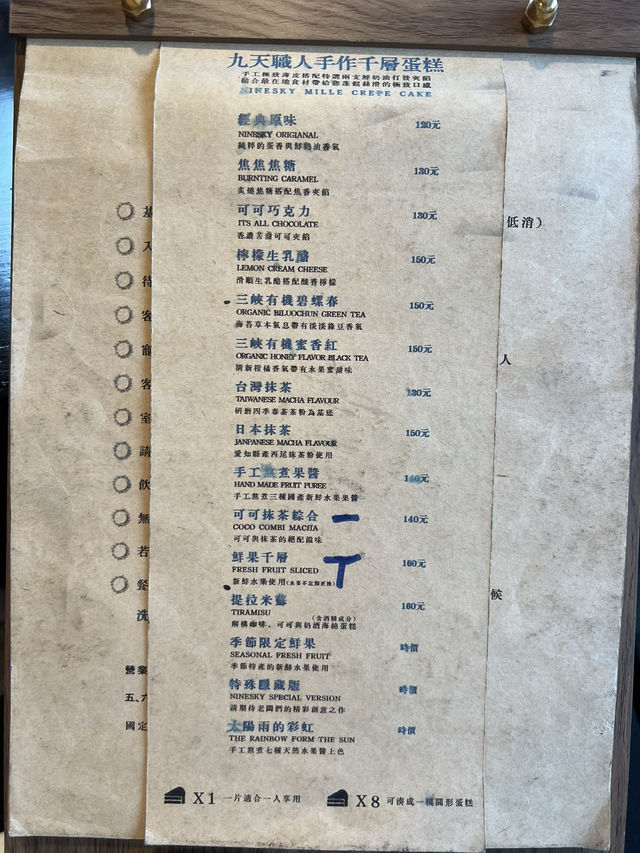 九天職人手作千層蛋糕
手工極致薄皮搭配特選兩支鮮奶油打發夾餡
NINESKY MILLE CREPE CAKE
經典原味 120元
NINESKY ORIGIANAL
純粹的蛋香與鮮奶油香氣
焦焦焦糖 130元
BURNTING CARAMEL
炙燒焦糖搭配焦香夾餡
可可巧克力 130元
ITS ALL CHOCOLATE
香濃苦甜可可夾餡
檸檬生乳酪 150元
LEMON CREAM CHEESE
滑順生乳酪搭配酸香檸檬
三峽有機碧螺春 150元
ORGANIC BILUOCHUN GREEN TEA
海苔草本氣息帶有淡淡綠豆香氣
三峽有機蜜香紅 150元
ORGANIC HONEY FLAVOR BLACK TEA
清新柑橘香氣帶有水果蜜甜味
台灣抹茶 130元
TAIWANESE MACHA FLAVOUR
研磨四季春茶茶粉為基底
日本抹茶 150元
JANPANESE MACHA FLAVOUR
愛知縣產西尾抹茶粉使用
手工熬煮果醬 140元
HAND MADE FRUIT PUREE
手工熬煮三種國產新鮮水果果醬
可可抹茶綜合 一 140元
COCO COMBI MACHA
可可與抹茶的絕配滋味
鮮果千層 160元
FRESH FRUIT SLICED
新鮮水果使用(水果不定期更換)
提拉米蘇 160元
TIRAMISU (含酒精成分)
解構咖啡、可可與奶酒海綿蛋糕
季節限定鮮果 時價
SEASONAL FRESH FRUIT
季節特產的新鮮水果使用
特殊隱藏版 時價
NINESKY SPECIAL VERSION
請期待老闆們的精彩創意之作
太陽雨的彩虹 時價
THE RAINBOW FORM THE SUN
手工熬煮七種天然水果醬上色
X1 一片適合一人享用
X8 可湊成一模圓形蛋糕
基
入
待
客
寵
客
室
請
飲
無
若
餐
洗
營業
五、六
國定
低消）
人
候